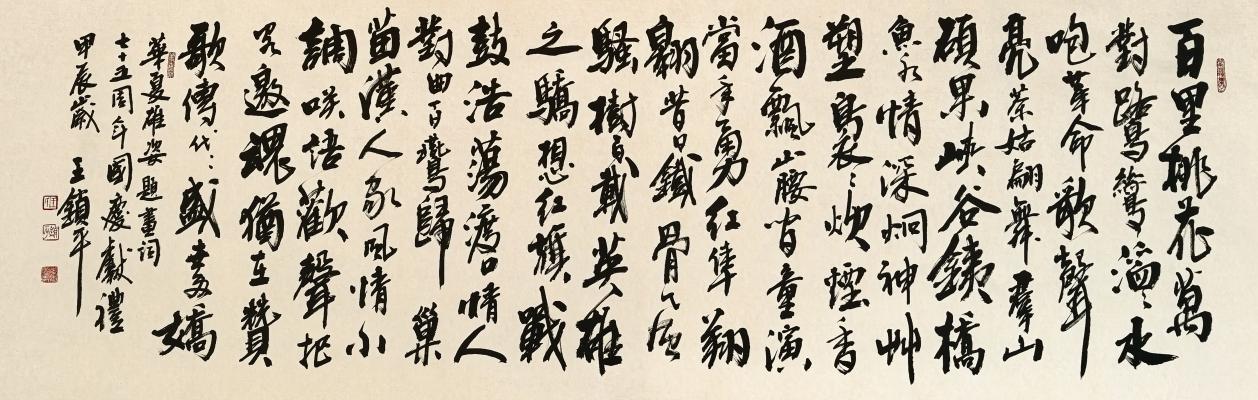 百里桃花萬
對鷺鴦滔〻水
咆革命歌聲
亮茶姑翩舞羣山
碩果峽谷鐵橋
魚水情深炯神州
塑衣〻炊煙香
酒飄山腰童演
當年勇紅隼翔
翱昔日鐵骨
騷樹百載英雄
之驕想紅旗戰
鼓浩蕩渡口情人
對曲百鶯歸巢
苗漢人家風情小
調咲語歡聲把
君邀魂猶在贊
歌傳代〻盛世多嬌
華夏雄姿題畫詞
七十五周年國慶獻禮
甲辰歲 王平